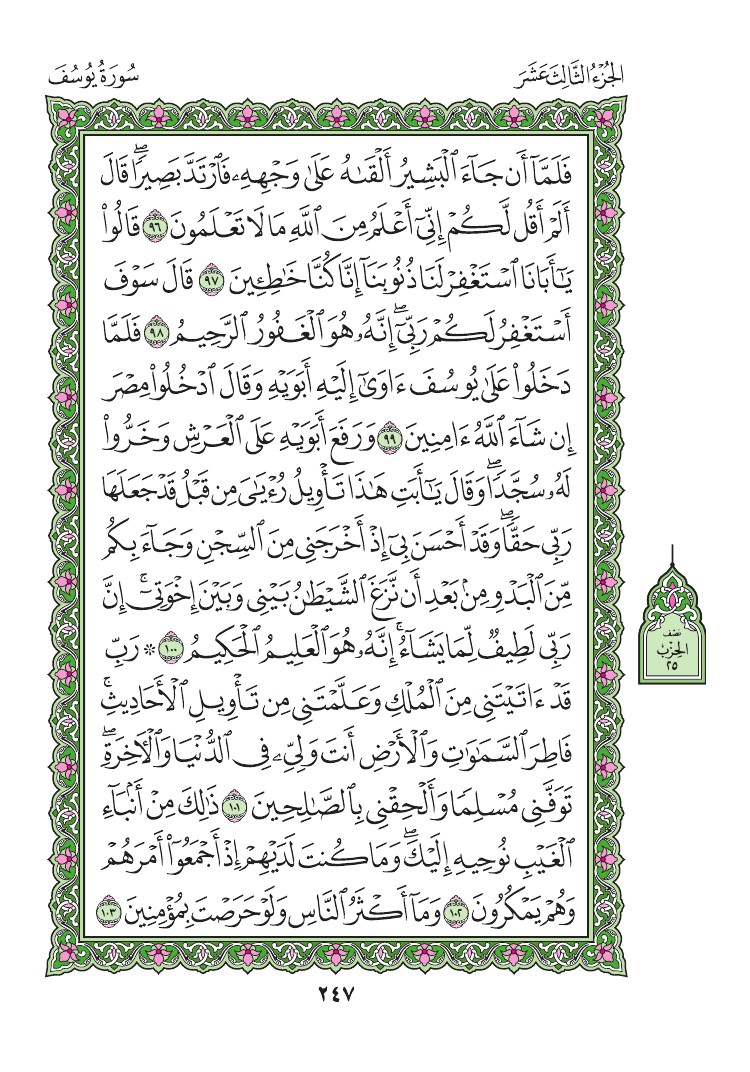 الجُزْءُ الثَّالِثَ عَشَرَ
سُورَةُ يُوسُفَ
فَلَمَّآ أَن جَآءَ ٱلۡبَشِيرُ أَلۡقَىٰهُ عَلَىٰ وَجۡهِهِۦ فَٱرۡتَدَّ بَصِيرٗاۖ قَالَ
أَلَمۡ أَقُل لَّكُمۡ إِنِّيٓ أَعۡلَمُ مِنَ ٱللَّهِ مَا لَا تَعۡلَمُونَ ٩٦ قَالُواْ
يَٰٓأَبَانَا ٱسۡتَغۡفِرۡ لَنَا ذُنُوبَنَآ إِنَّا كُنَّا خَٰطِـِٔينَ ٩٧ قَالَ سَوۡفَ
أَسۡتَغۡفِرُ لَكُمۡ رَبِّيٓۖ إِنَّهُۥ هُوَ ٱلۡغَفُورُ ٱلرَّحِيمُ ٩٨ فَلَمَّا
دَخَلُواْ عَلَىٰ يُوسُفَ ءَاوَىٰٓ إِلَيۡهِ أَبَوَيۡهِ وَقَالَ ٱدۡخُلُواْ مِصۡرَ
إِن شَآءَ ٱللَّهُ ءَامِنِينَ ٩٩ وَرَفَعَ أَبَوَيۡهِ عَلَى ٱلۡعَرۡشِ وَخَرُّواْ
لَهُۥ سُجَّدٗاۖ وَقَالَ يَٰٓأَبَتِ هَٰذَا تَأۡوِيلُ رُءۡيَٰيَ مِن قَبۡلُ قَدۡ جَعَلَهَا
رَبِّي حَقّٗاۖ وَقَدۡ أَحۡسَنَ بِيٓ إِذۡ أَخۡرَجَنِي مِنَ ٱلسِّجۡنِ وَجَآءَ بِكُم
مِّنَ ٱلۡبَدۡوِ مِنۢ بَعۡدِ أَن نَّزَغَ ٱلشَّيۡطَٰنُ بَيۡنِي وَبَيۡنَ إِخۡوَتِيٓۚ إِنَّ
رَبِّي لَطِيفٞ لِّمَا يَشَآءُۚ إِنَّهُۥ هُوَ ٱلۡعَلِيمُ ٱلۡحَكِيمُ ١٠٠ ۞ رَبِّ
قَدۡ ءَاتَيۡتَنِي مِنَ ٱلۡمُلۡكِ وَعَلَّمۡتَنِي مِن تَأۡوِيلِ ٱلۡأَحَادِيثِۚ
فَاطِرَ ٱلسَّمَٰوَٰتِ وَٱلۡأَرۡضِ أَنتَ وَلِيِّۦ فِي ٱلدُّنۡيَا وَٱلۡأٓخِرَةِۖ
تَوَفَّنِي مُسۡلِمٗا وَأَلۡحِقۡنِي بِٱلصَّٰلِحِينَ ١٠١ ذَٰلِكَ مِنۡ أَنۢبَآءِ
ٱلۡغَيۡبِ نُوحِيهِ إِلَيۡكَۖ وَمَا كُنتَ لَدَيۡهِمۡ إِذۡ أَجۡمَعُوٓاْ أَمۡرَهُمۡ
وَهُمۡ يَمۡكُرُونَ ١٠٢ وَمَآ أَكۡثَرُ ٱلنَّاسِ وَلَوۡ حَرَصۡتَ بِمُؤۡمِنِينَ ١٠٣
نصف
الحِزْب
٢٥
٢٤٧